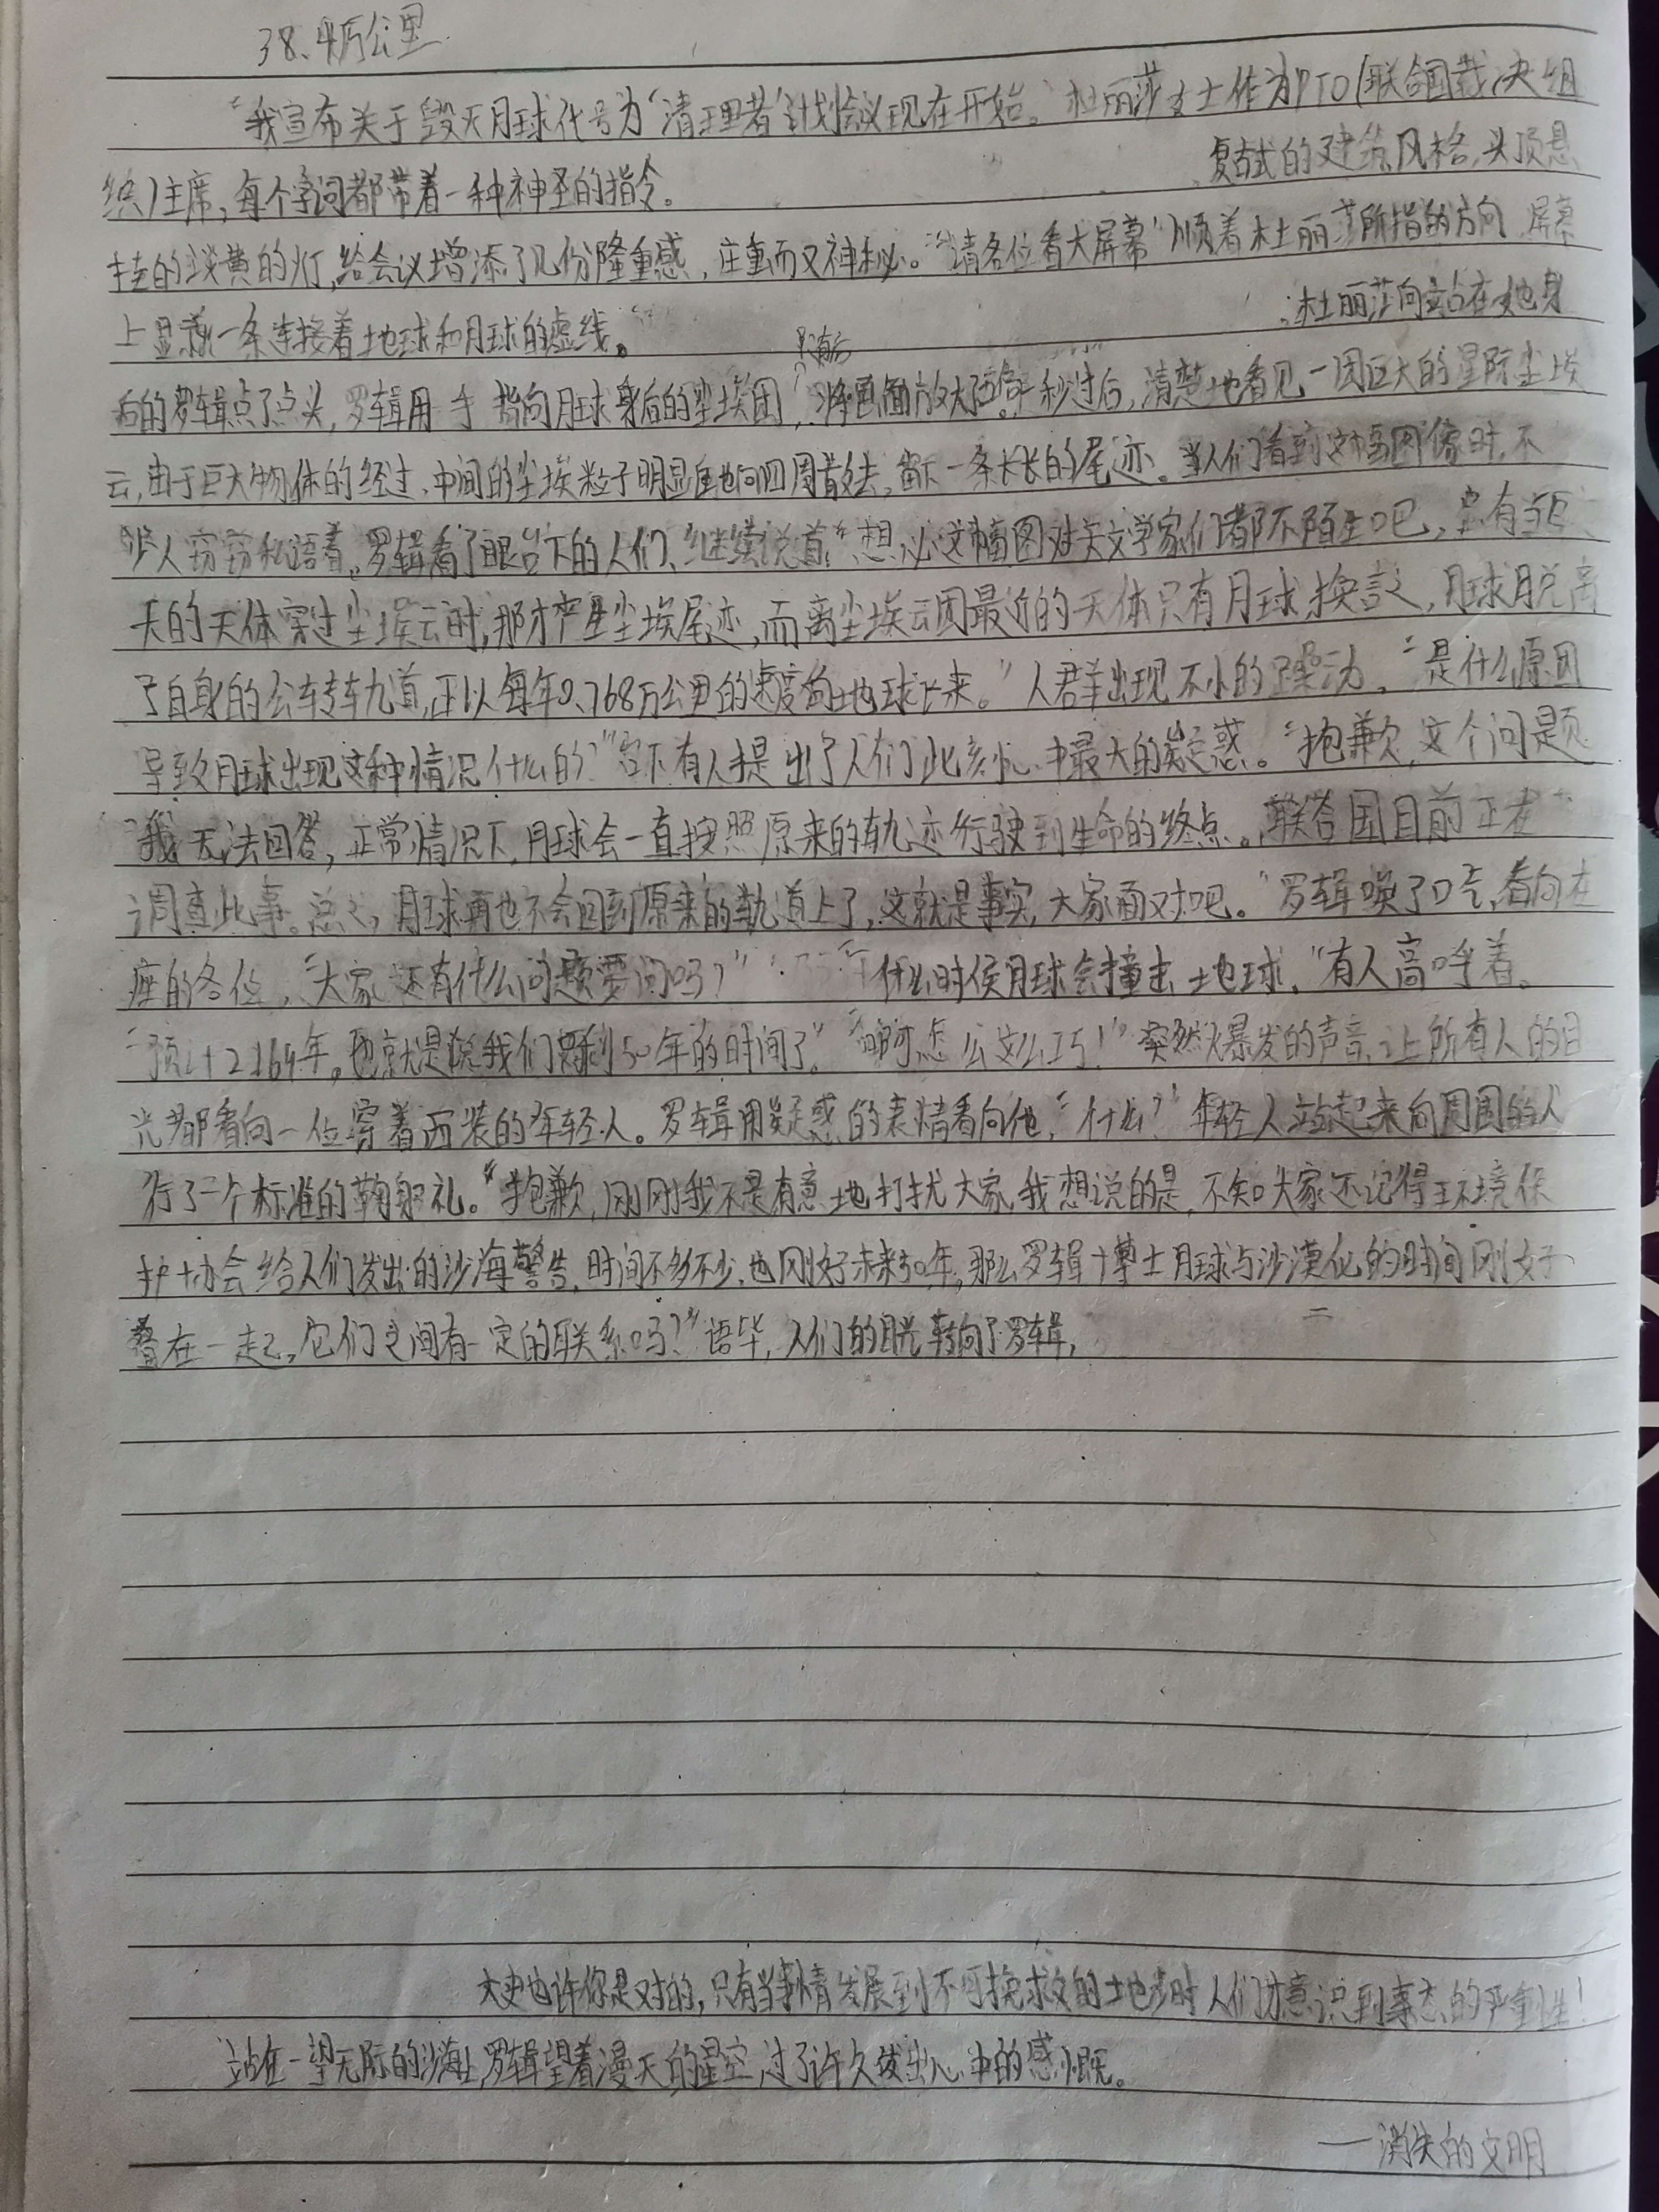 38、4万公里
“我宣布关于毁灭月球代号为‘清理者’计划会议现在开始。”杜丽莎女士作为PTO(联合国裁决组
织)主席,每个字词都带着一种神圣的指令。 复古式的建筑风格,头顶悬
挂的浅黄的灯,给会议增添了几份隆重感,庄重而又神秘。“请各位看大屏幕”顺着杜丽莎所指的方向 屏幕
上显示一条连接着地球和月球的虚线。 杜丽莎向站在她身
后的罗辑点了点头,罗辑用手指向月球身后的尘埃团, 将画面放大 秒过后,清楚地看见一团巨大的星际尘埃
云,由于巨大物体的经过,中间的尘埃粒子明显地向四周散去,留下一条长长的尾迹。当人们看到这幅图像时,不
少人窃窃私语着。罗辑看了眼台下的人们、继续说道:“想必这幅图对天文学家们都不陌生吧,只有当巨
大的天体穿过尘埃云时,那才产生尘埃尾迹,而离尘埃云团最近的天体只有月球,换言之,月球脱离
了自身的公转轨道,正以每年0.768万公里的速度向地球飞来。”人群出现不小的躁动,“是什么原因
导致月球出现这种情况什么的”台下有人提出了人们此刻心中最大的疑惑。“抱歉,这个问题
我无法回答,正常情况下,月球会一直按照原来的轨迹行驶到生命的终点。联合国目前正在
调查此事。总之,月球再也不会回到原来的轨道上了,这就是事实,大家面对吧。”罗辑唤了口气,看向在
座的各位,“大家还有什么问题要问吗?” “什么时侯月球会撞击地球,”有人高呼着。
“预计2164年。也就是说我们只剩50年的时间了”“啊,怎么这么巧!”突然爆发的声音,让所有人的目
光都看向一位穿着西装的年轻人。罗辑用疑惑的表情看向他,“什么?”年轻人站起来向周围的人
行了一个标准的鞠躬礼。“抱歉,刚刚我不是有意地打扰大家,我想说的是,不知大家还记得环境保
护协会给人们发出的沙海警告,时间不多不少,也刚好未来50年,那么罗辑博士月球与沙漠化的时间刚好
叠在一起,它们之间有一定的联系吗?”语毕,人们的目光转向了罗辑,
大史也许你是对的,只有当事情发展到不可挽救的地步时人们才意识到事态的严重性!
站在一望无际的沙海上,罗辑望着漫天的星空,过了许久发出心中的感慨。
——消失的文明